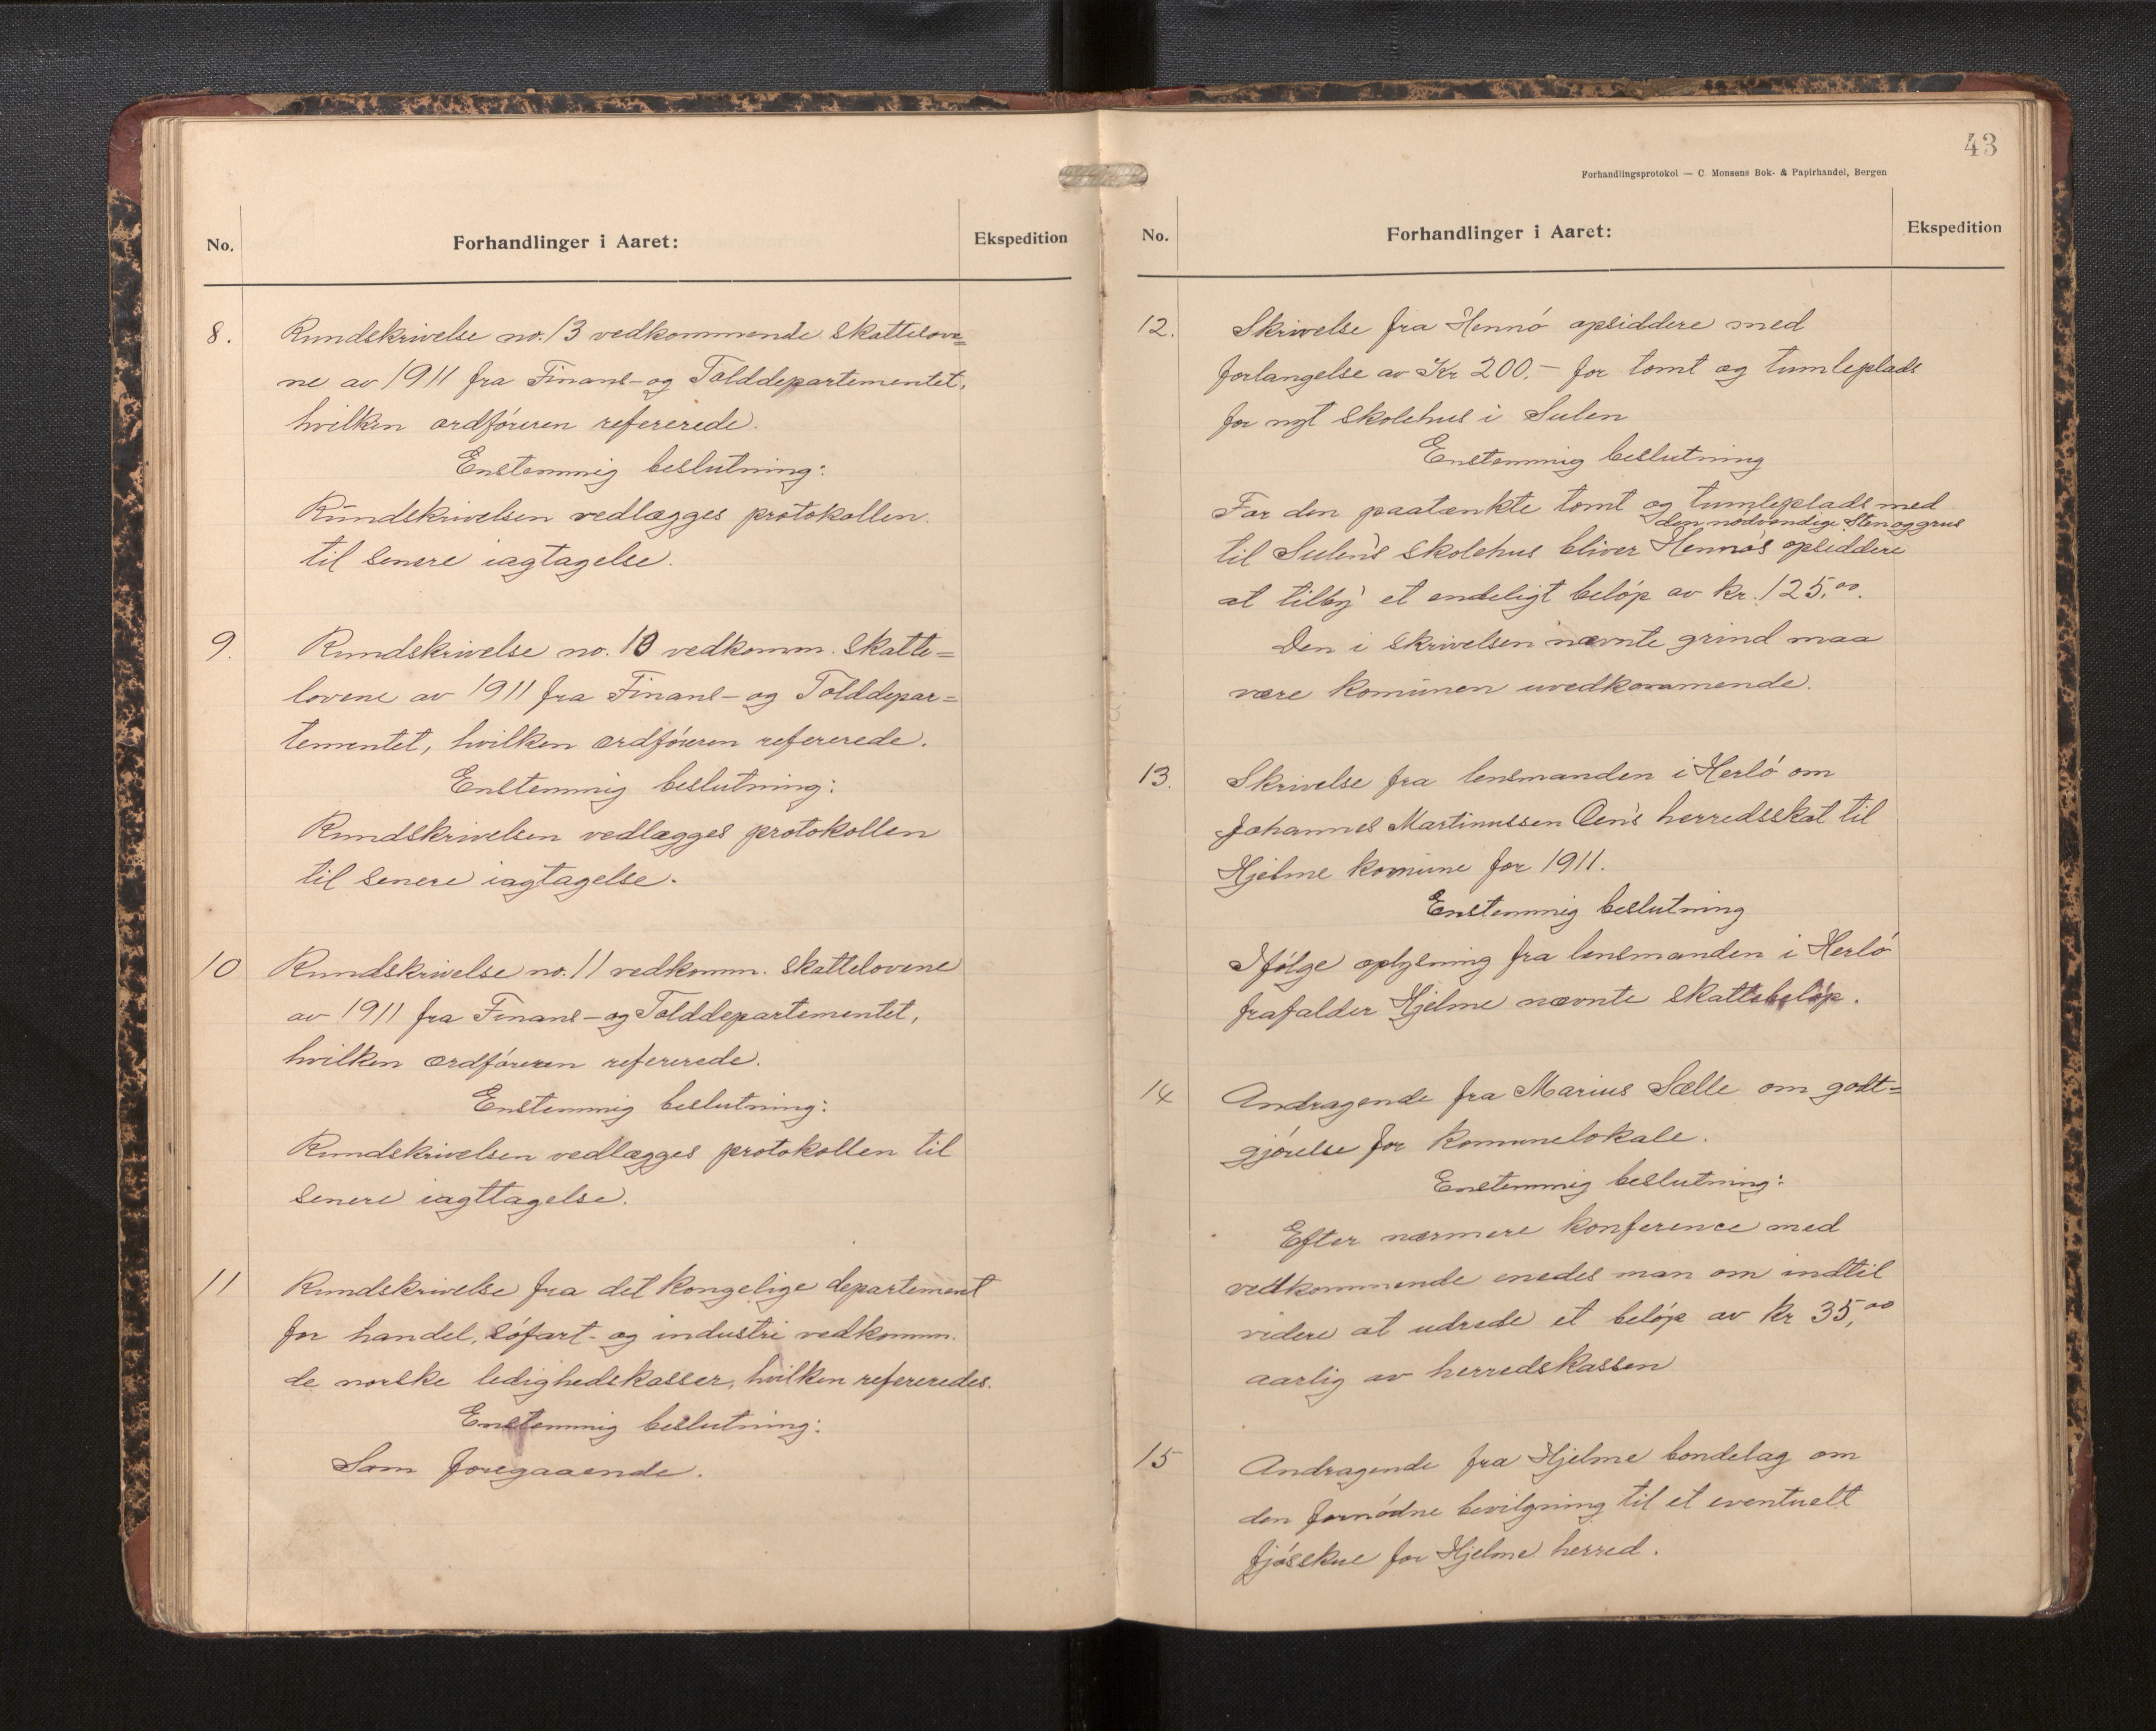 No.
Forhandlinger i Aaret:
Ekspedition
8. Rundskrivelse no. 13 vedkommende skattelove=
ne av 1911 fra Finans- og Tolddepartementet,
hvilken ordføreren refererede.
Enstemmig beslutning:
Rundskrivelsen vedlægges protokollen
til senere iagtagelse.
9. Rundskrivelse no. 10 vedkomm. skatte=
lovene av 1911 fra Finans- og Tolddepar=
tementet, hvilken ordføreren refererede.
Enstemmig beslutning:
Rundskrivelsen vedlægges protokollen
til senere iagtagelse.
10 Rundskrivelse no. 11 vedkomm. skattelovene
av 1911 fra Finans- og Tolddepartementet,
hvilken ordføreren refererede.
Enstemmig beslutning:
Rundskrivelsen vedlægges protokollen til
senere iagttagelse.
11 Rundskrivelse fra det kongelige departement
for handel, søfart- og industri vedkomm.
de norske ledighedskasser, hvilken refereredes.
Enstemmig beslutning:
Som foregaaende.
43
Forhandlingsprotokol — C. Monsens Bok- & Papirhandel, Bergen
No.
Forhandlinger i Aaret:
Ekspedition
12. Skrivelse fra Hennø opsiddere med
forlangelse av Kr 200.- for tomt og tumleplads
for nyt skolehus i Sulen
Enstemmig beslutning
For den paatænkte tomt og tumleplads med
den nødvendige sten og grus
til Sulens skolehus bliver Hennøs opsiddere
at tilby et endeligt beløp av kr. 125,00.
Den i skrivelsen nævnte grind maa
være komunen uvedkommende.
13. Skrivelse fra lensmanden i Herlø om
Johannes Martinussen Øens herredsskat til
Hjelme komune for 1911.
Enstemmig beslutning
Ifølge oplysning fra lensmanden i Herlø
frafalder Hjelme nævnte skattebeløp.
14 Andragende fra Marius Sælle om godt=
gjørelse for komunelokale.
Enstemmig beslutning:
Efter nærmere konference med
vedkommende enedes man om indtil
videre at udrede et beløp av kr 35,00
aarlig av herredskassen
15 Andragende fra Hjelme bondelag om
den fornødne bevilgning til et eventuelt
fjøsskue for Hjelme herred.